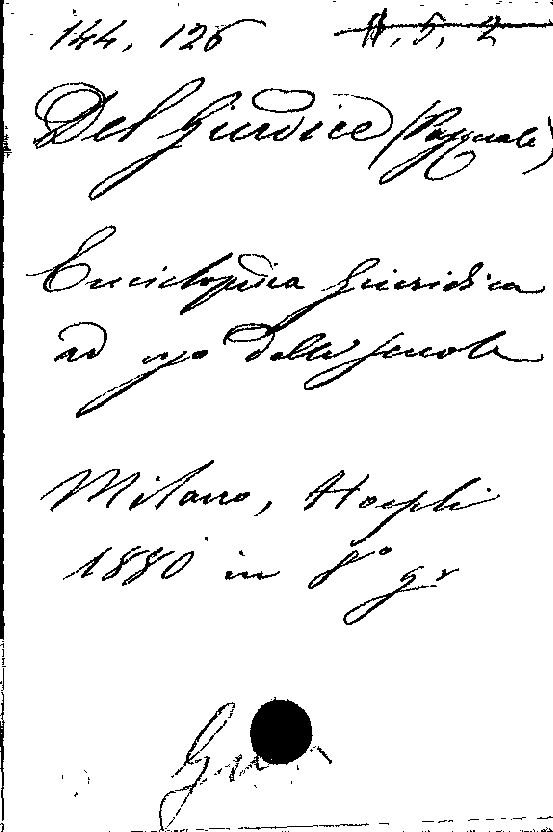 144, 126 A, 5, 2
Del Giudice (Pasquale)
Enciclopedia Giuridica
ad uso delle scuole
Milano, Hoepli
1880 in 8° gr